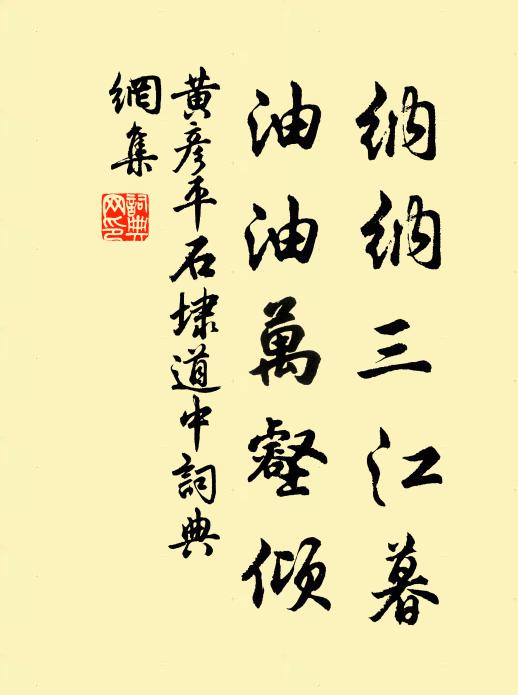 納納三江暮
油油萬壑傾
黃彥平石埭道中詞典
網集
詞典
网印